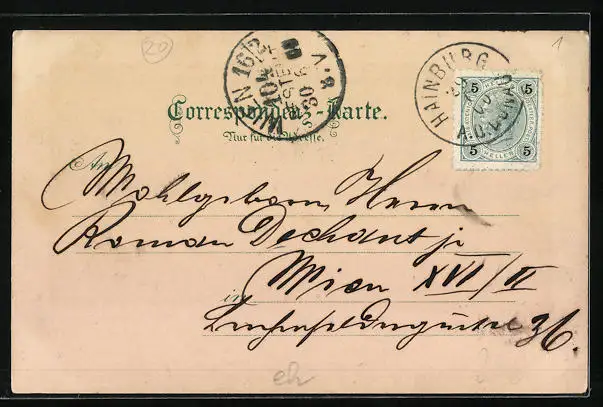 20
1
WIEN 16/2
HAINBURG A.D. DONAU
5 5
HELLER
5 5
Correspondenz-Karte.
Nur für die Adresse.
An
Wohlgeboren Herrn
Roman Dechant jr
in Wien XVI/II
Lerchenfeldergürtel 36.